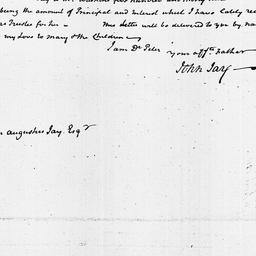 being the amount of Principal and Interest which I have lately rec
as Trustee for her — This Letter will be delivered to you by
my Love to Mary & the Children
I am Dr. Peter
your affte. Father
John Jay —
Augustus Jay, Esqr